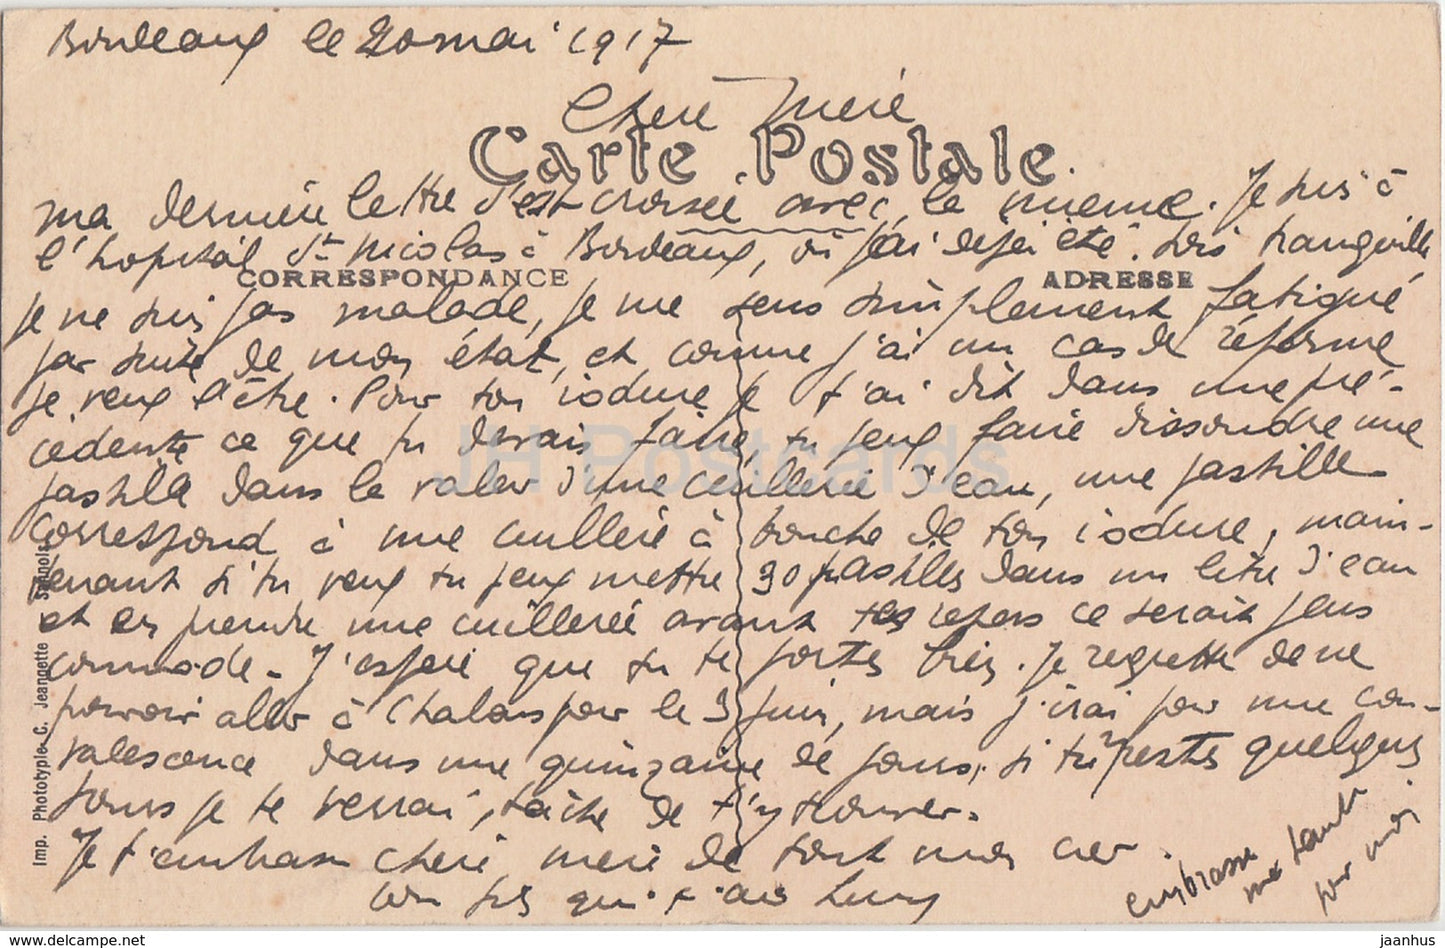 Bordeaux le 20 mai 1917
Chere mere
Carte Postale
ma derniére lettre s'est croisée avec la mienne. Je suis à
l'hopital St Nicolas à Bordeaux, où j'ai dejà été. Sois tranquille
CORRESPONDANCE ADRESSE
je ne suis pas malade, je me sens simplement fatigué
par suite de mon état, et comme j'ai un cas de réforme
je veux l'être. Pour ton iodure je t'ai dit dans une pré-
cédente ce que tu devais faire, tu peux faire dissoudre une
pastille dans la valeur d'une cuillerée d'eau, une pastille
correspond à une cuillere à bouche de ton iodure, main-
tenant si tu veux tu peux mettre 30 pastilles dans un litre d'eau
et en prendre une cuillerée avant tes repas ce serait plus
commode. J'espere que tu te portes bien. Je regrette de ne
pouvoir aller à Chalais pour le 3 juin, mais j'irai pour une con-
valescence dans une quinzaine de jours, si tu y restes quelques
jours je te verrai, tâche de t'y trouver.
Je t'embrasse chere mere de tout mon cœur.
ton fils qui t'aime
embrasse
ma tante
pour moi
Imp. Phototypie C. Jeangette
JH Postcards
delcampe.net
jaanhus